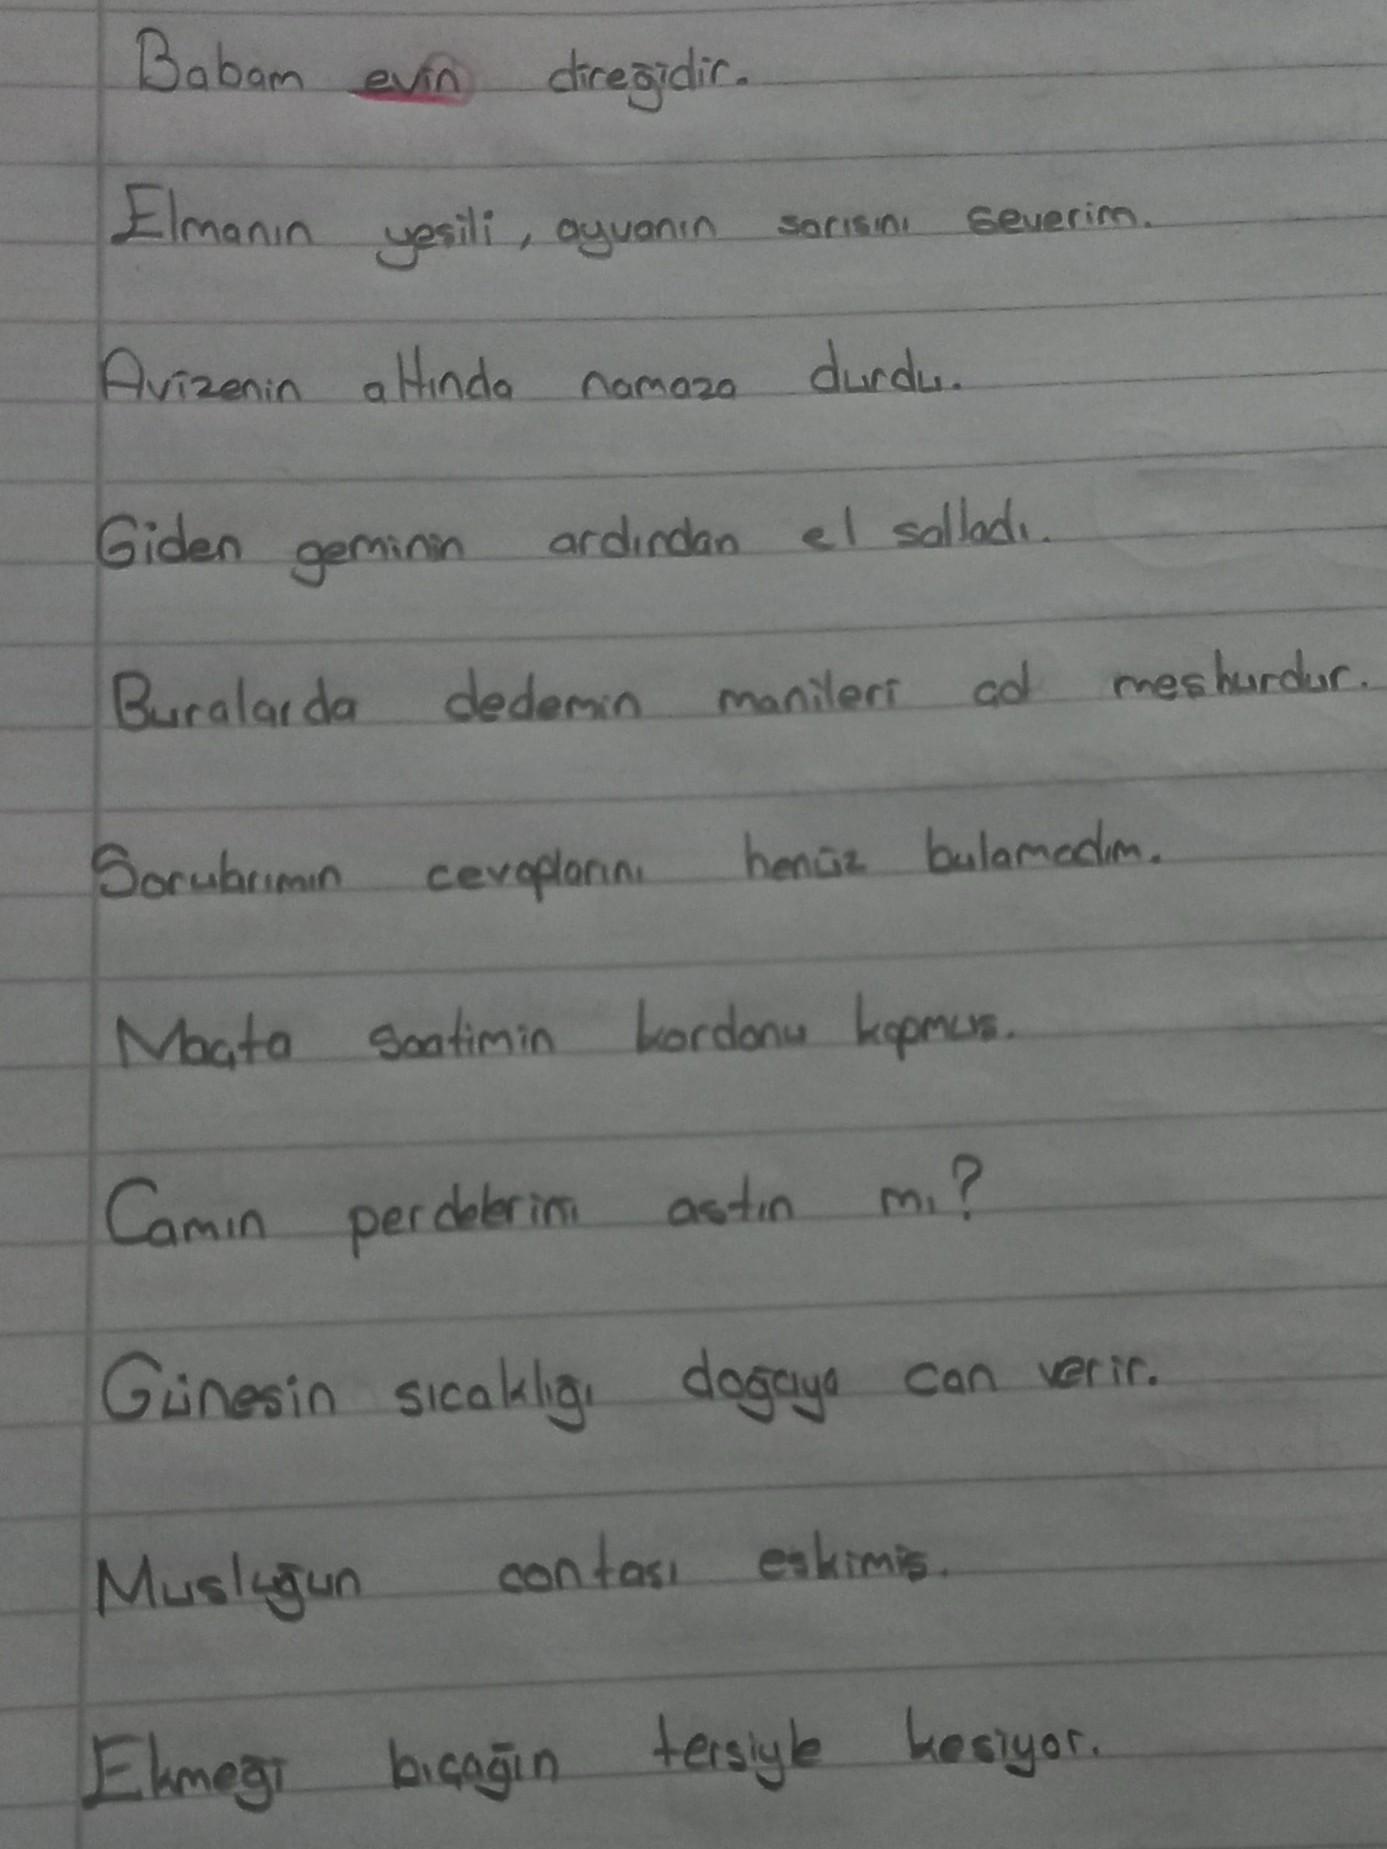 Babam evin direğidir.
Elmanın yeşili, ayvanın sarısını severim.
Avizenin altında namaza durdu.
Giden geminin ardından el salladı.
Buralarda dedemin manileri meshurdur.
Sorularımın cevaplarını henüz bulamadım.
saatimin kordonu kopmus.
Camın perdelerini astın mı?
Günesin sıcaklığı doğaya can verir.
Musluğun contası eskimis.
Ekmeği bıçağın tersiyle kesiyor.